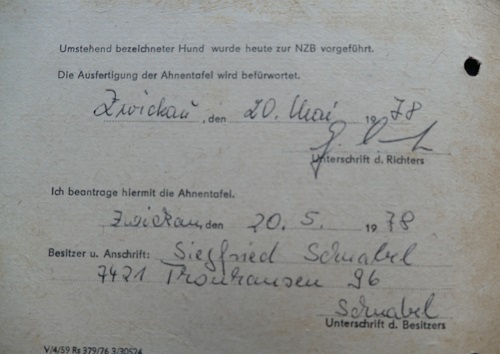 Umstehend bezeichneter Hund wurde heute zur NZB vorgeführt.
Die Ausfertigung der Ahnentafel wird befürwortet.
Zwickau, den 20. Mai 1978
Unterschrift d. Richters
Ich beantrage hiermit die Ahnentafel.
Zwickau, den 20. 5. 1978
Besitzer u. Anschrift: Siegfried Schnabel
7421 96
Schnabel
Unterschrift d. Besitzers
V/4/59 Rs 379/76 3/30524